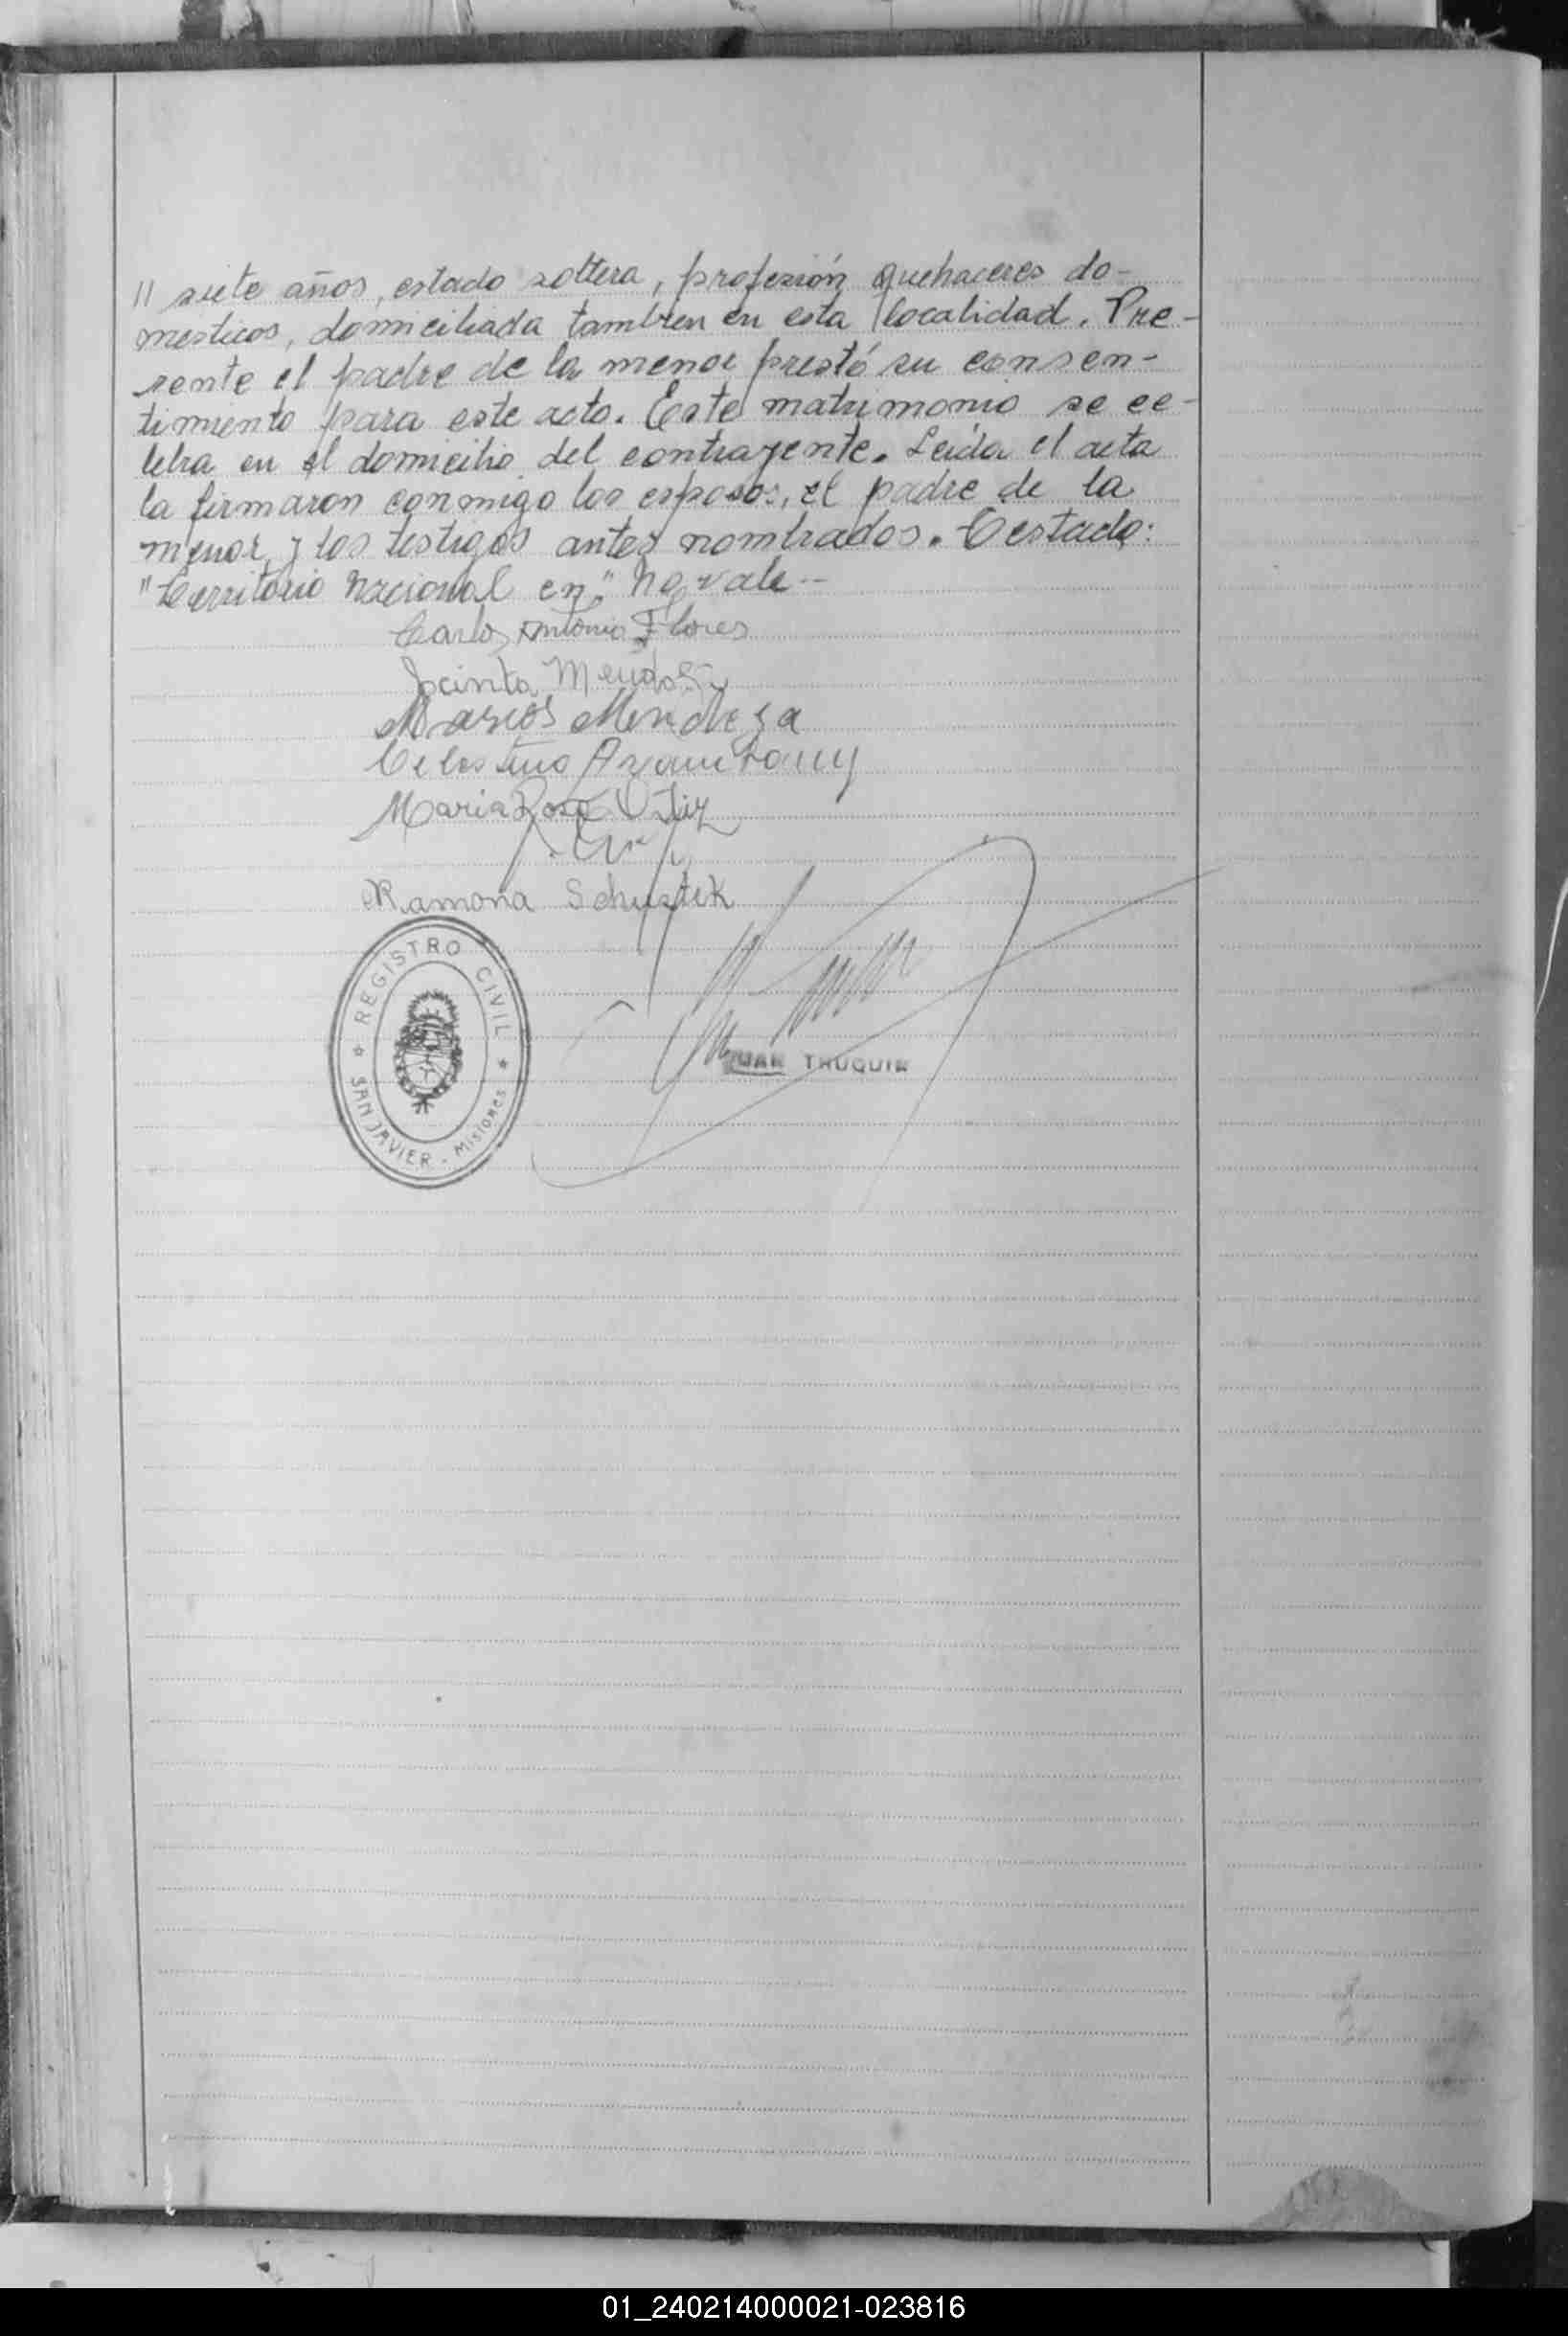 // siete años, estado soltera, profesión quehaceres do-
mesticos, domiciliada tambien en esta localidad. Pre-
sente el padre de la menor prestó su consen-
timiento para este acto. Este matrimonio se ce-
lebra en el domicilio del contrayente. Leída el acta
la firmaron conmigo los esposos, el padre de la
menor y los testigos antes nombrados. Testado:
"Territorio Nacional en" No vale --
Carlos Antonio Flores
Jacinta Mendoza
Marcos Mendoza
Celestino
Maria Rosa Ortiz
Ramona Schustek
REGISTRO CIVIL
SAN JAVIER - Misiones
JUAN TRUQUIN
01_240214000021-023816